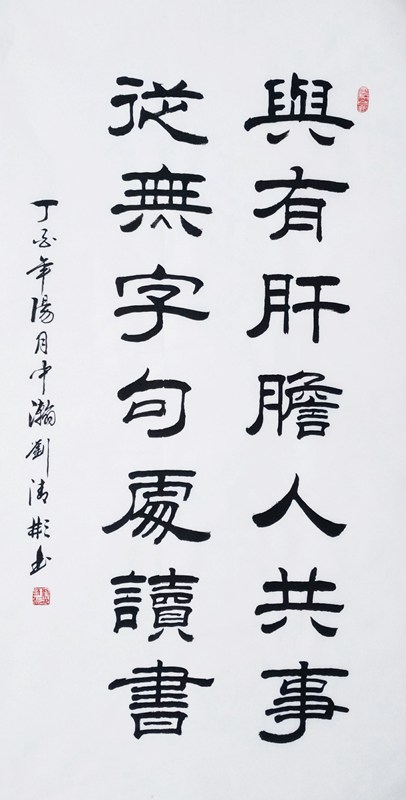 與有肝膽人共事
從無字句處讀書
丁酉年陽月中瀚劉清彬書